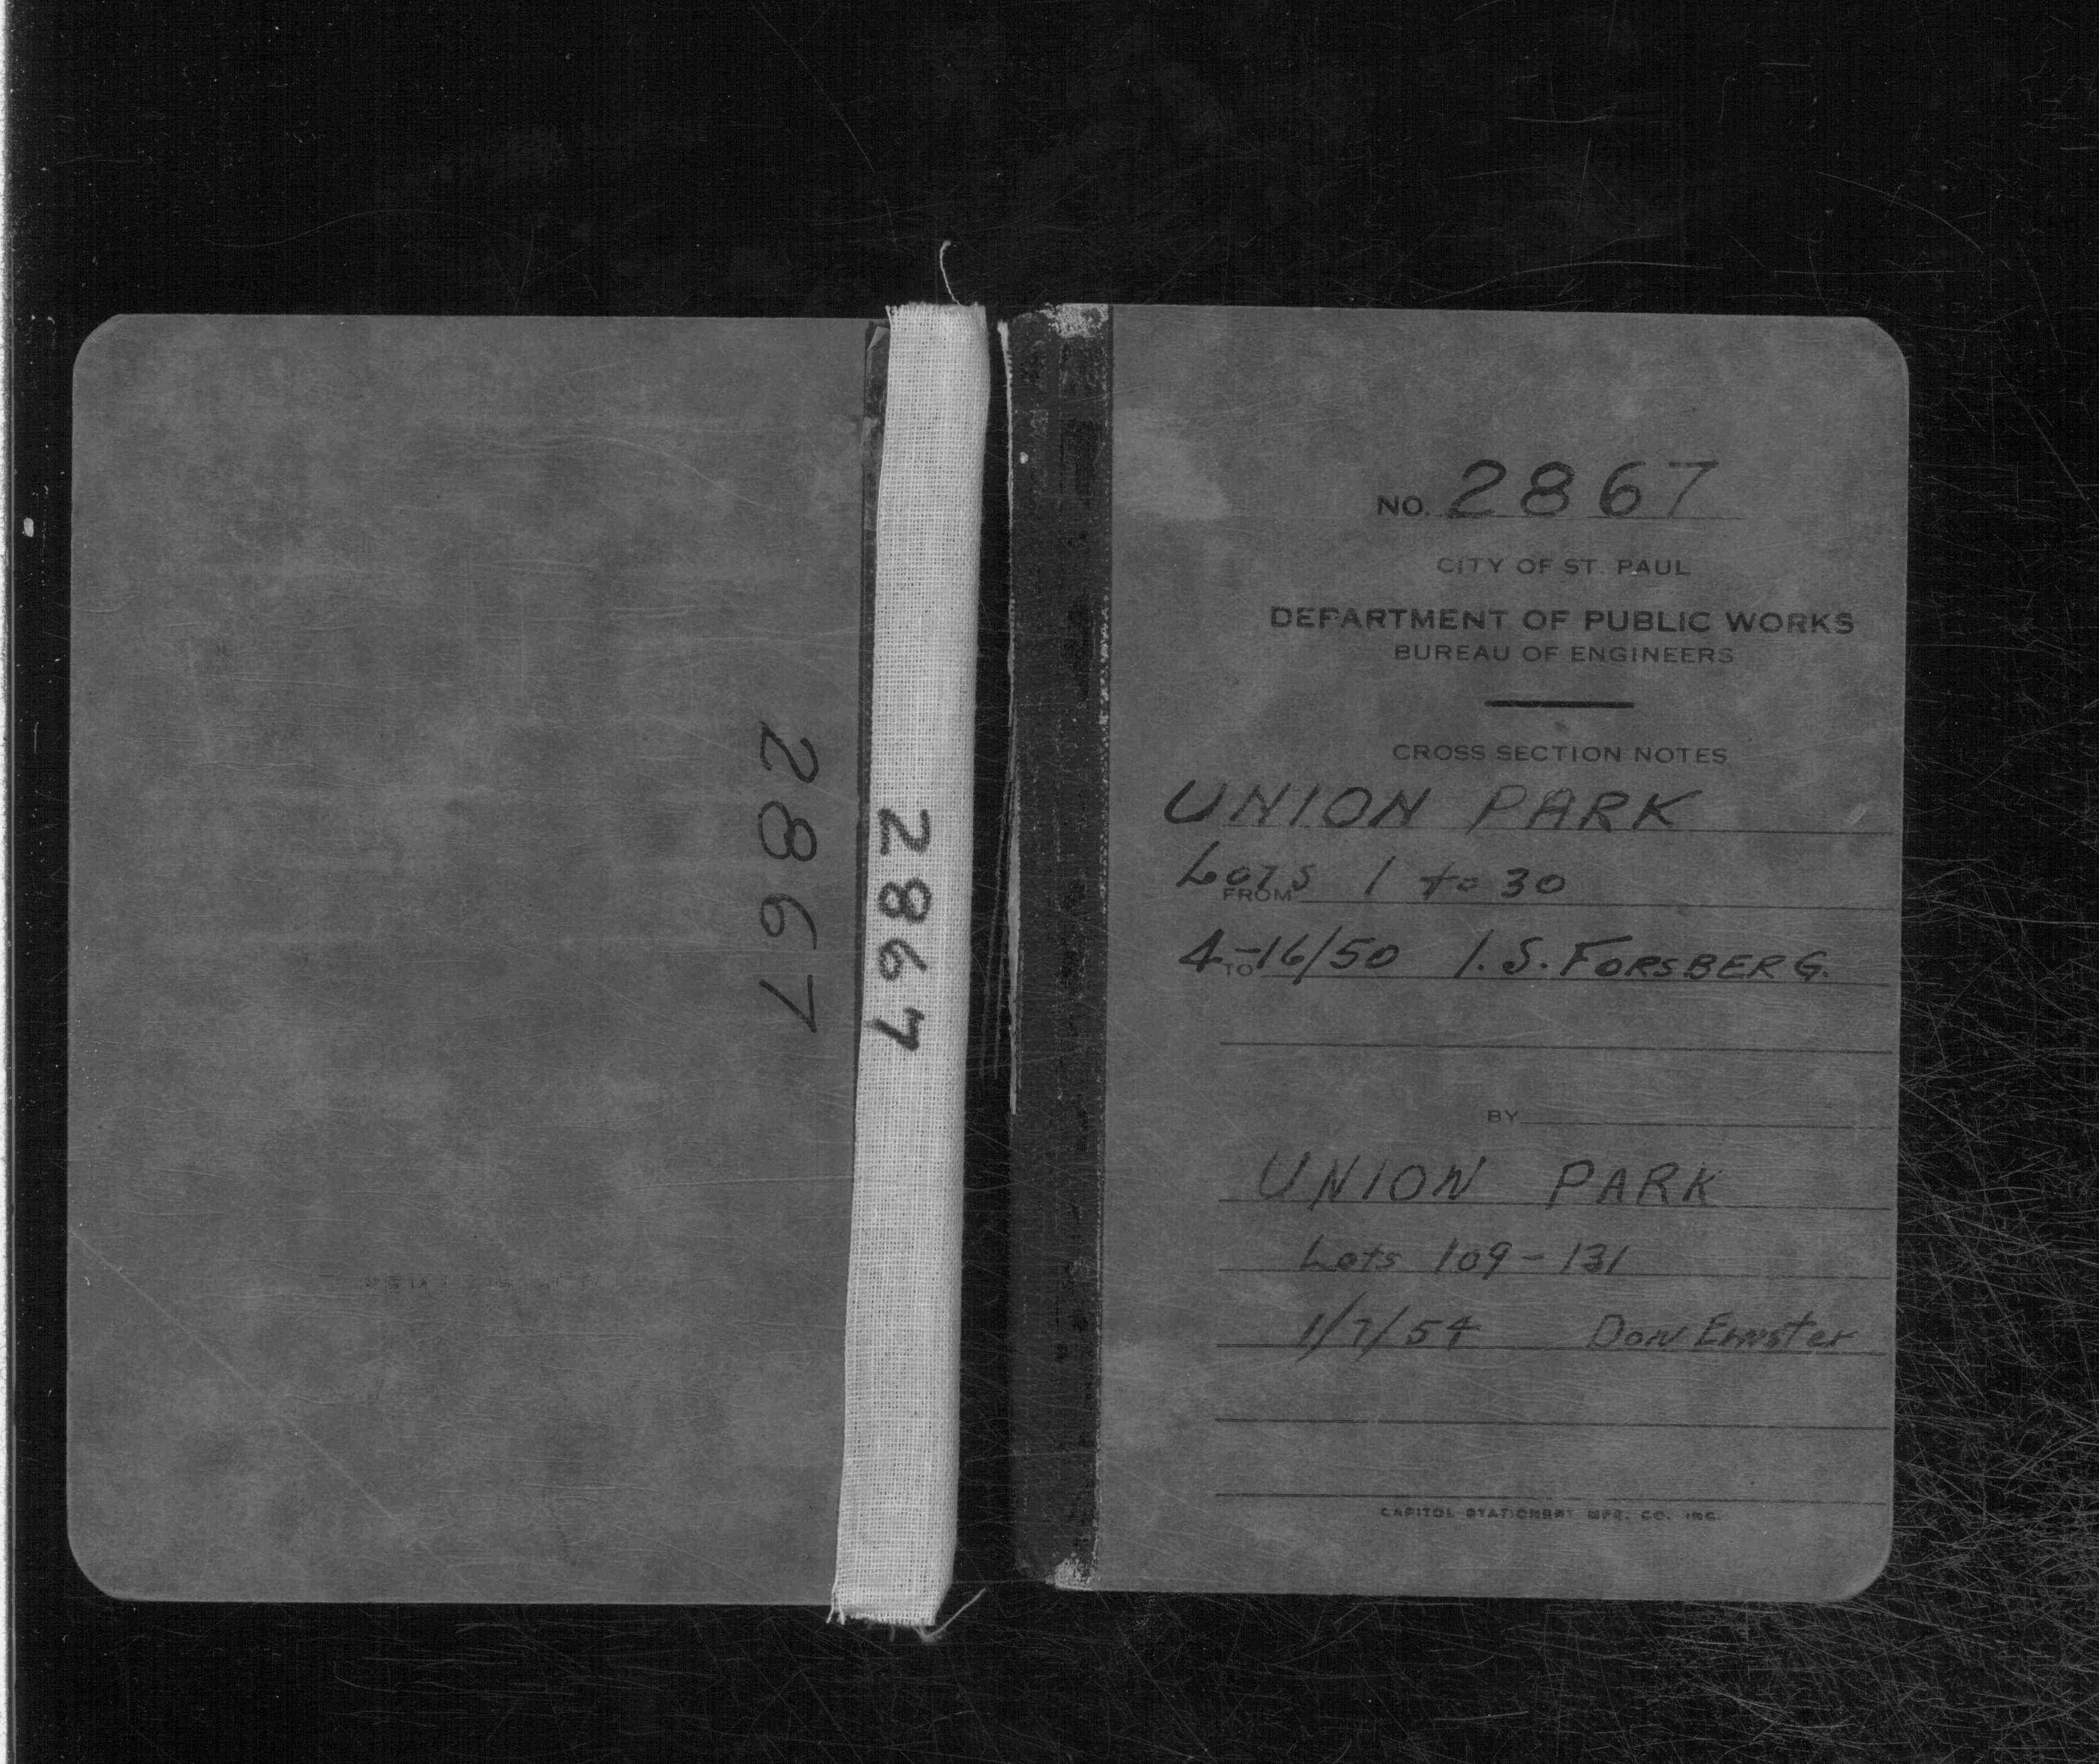 2867
2867
NO. 2867
CITY OF ST. PAUL
DEPARTMENT OF PUBLIC WORKS
BUREAU OF ENGINEERS
CROSS SECTION NOTES
UNION PARK
FROM Lots 1 to 30
TO 4-16/50 I.S. FORSBERG.
BY
UNION PARK
Lots 109-131
1/7/54 Don
CAPITOL STATIONERY MFG. CO. INC.